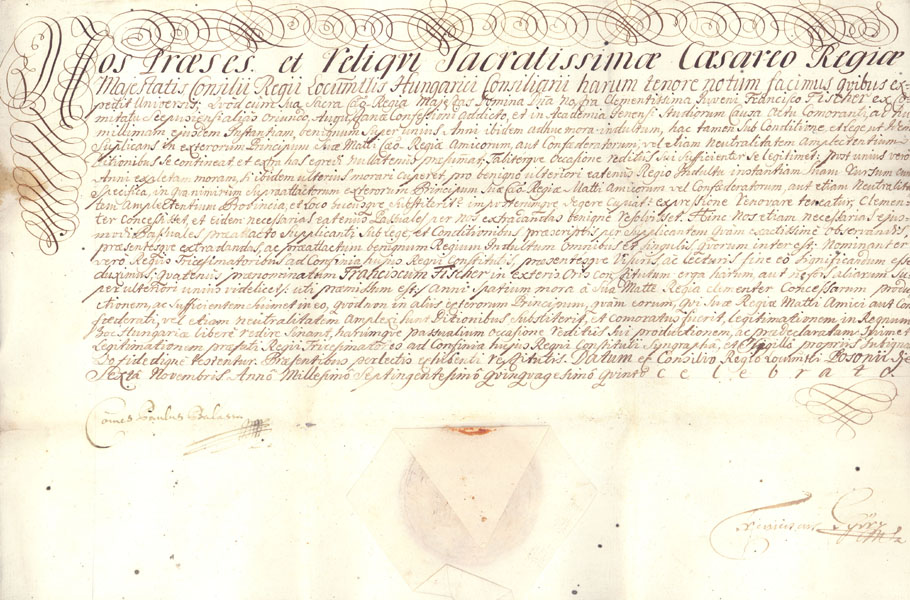 Nos Præses et reliqvi Sacratissimæ Cæsareo Regiæ
Majestatis Consilii Regii Locumtltis Hungarici Consiliarii harum tenore notum facimus qvibus ex-
pedit Universis: Qvod cum Sua Sacra Cæo Regia Majestas Domina Dna Nostra Clementissima Iuveni Francisco Fischer ex Co-
mitatu Scepusiensi Augustanæ Confessioni addicto, et in Academia Ienensi Studiorum Causa actu Comoranti, ad
millimam ejusdem Instantiam, benignum Super unius Anni ibidem adhuc mora indultum, hac tamen Sub Conditione,
Supplicans in exterorum Principum Suæ Matti Cæo Regiæ Amicorum, aut Confæderatorum, vel etiam Neutralitatem Amplectentium
Ditionibus Se contineat, et extra has egredi nullatenus præsumat, taliterqve occasione reditus Sui Sufficienter Se legitimet: prout unius vero
Anni exactam moram, si ibidem ulterius morari cuperet, pro benigno ulteriori eatenus Regio Indultu instantiam Suam rursum
Specifica, in gremium Supradictorum exterorum Principum Suæ Cæo Regiæ Matti Amicorum vel Confæderatorum, aut etiam Neutralita-
tem Amplectentium Provincia, et Loco expressione renovare teneatur, Clemen-
ter Concessisset, et eidem necessarias eatenus Passuales per nos extradandas benigne resolvisset. Hinc Nos etiam necessarias ejus-
modi Passuales prædicto Supplicanti, Sub lege, et Conditionibus præscriptis per Supplicantem qvam exactissime observandis,
præsentesqve extradandas, ac prædictum benignum Regium Indultum Omnibus et Singulis qvorum interest: Nominanter
vero Regiis Tricesimatoribus ad Confinia hujus Regni Constitutis, præsentesqve Visuris ac lecturis fine eo Significandum esse
duximus; qvatenus prænominatum Franciscum Fischer in exteris Oris Constitutum erga harum,
per ulteriori unius videlicet: uti præmissum est, Anni Spatium mora a Sua Matte Regia Clementer Concessorum produ-
ctionem, ac Sufficientem Suimet in eo, qvod non in aliis exterorum Principum, qvam eorum, qvi Suæ Regiæ Matti Amici aut Con-
foederati, vel etiam Neutralitatem amplexi Sunt Ditionibus Substiterit, et comoratus fuerit, legitimationem in Regnum
hoc Hungariæ libere redire Sinant, harumqve passualium occasione reditus Sui productionem, ac prædeclaratam Suimet
Legitimationem præfati Regii Tricesimatores ad Confinia hujus Regni Constituti Syngrapha, et Sigillo propriis
De fide digne testentur. Præsentibus perlectis exhibenti restitutis. Datum ex Consilio Regio Locumtlti Posonii Die
Sexta Novembris Anno Millesimo Septingentesimo Qvinqvagesimo qvinto celebrato
Comes Paulus Balassa
Franciscus Győry